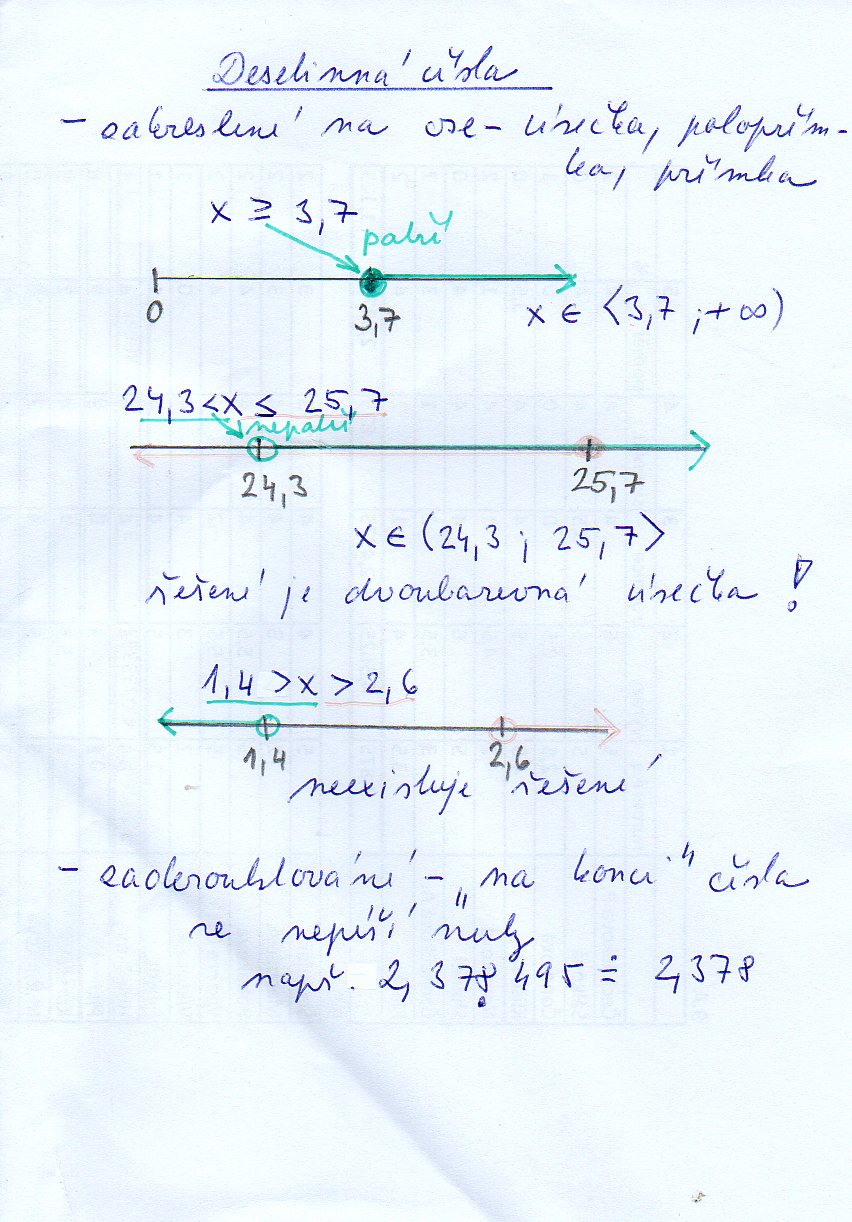 Desetinná čísla
- zakreslení na ose - úsečka, polopřím-
ka, přímka
x ≥ 3,7
patří
0 3,7
x ∈ ⟨3,7 ; +∞)
24,3 < x ≤ 25,7
nepatří
24,3 25,7
x ∈ (24,3 ; 25,7⟩
řešení je dvoubarevná úsečka !
1,4 > x > 2,6
1,4 2,6
neexistuje řešení
- zaokrouhlování - „na konci" čísla
se nepíší nuly
např. 2,378 495 ≐ 2,378